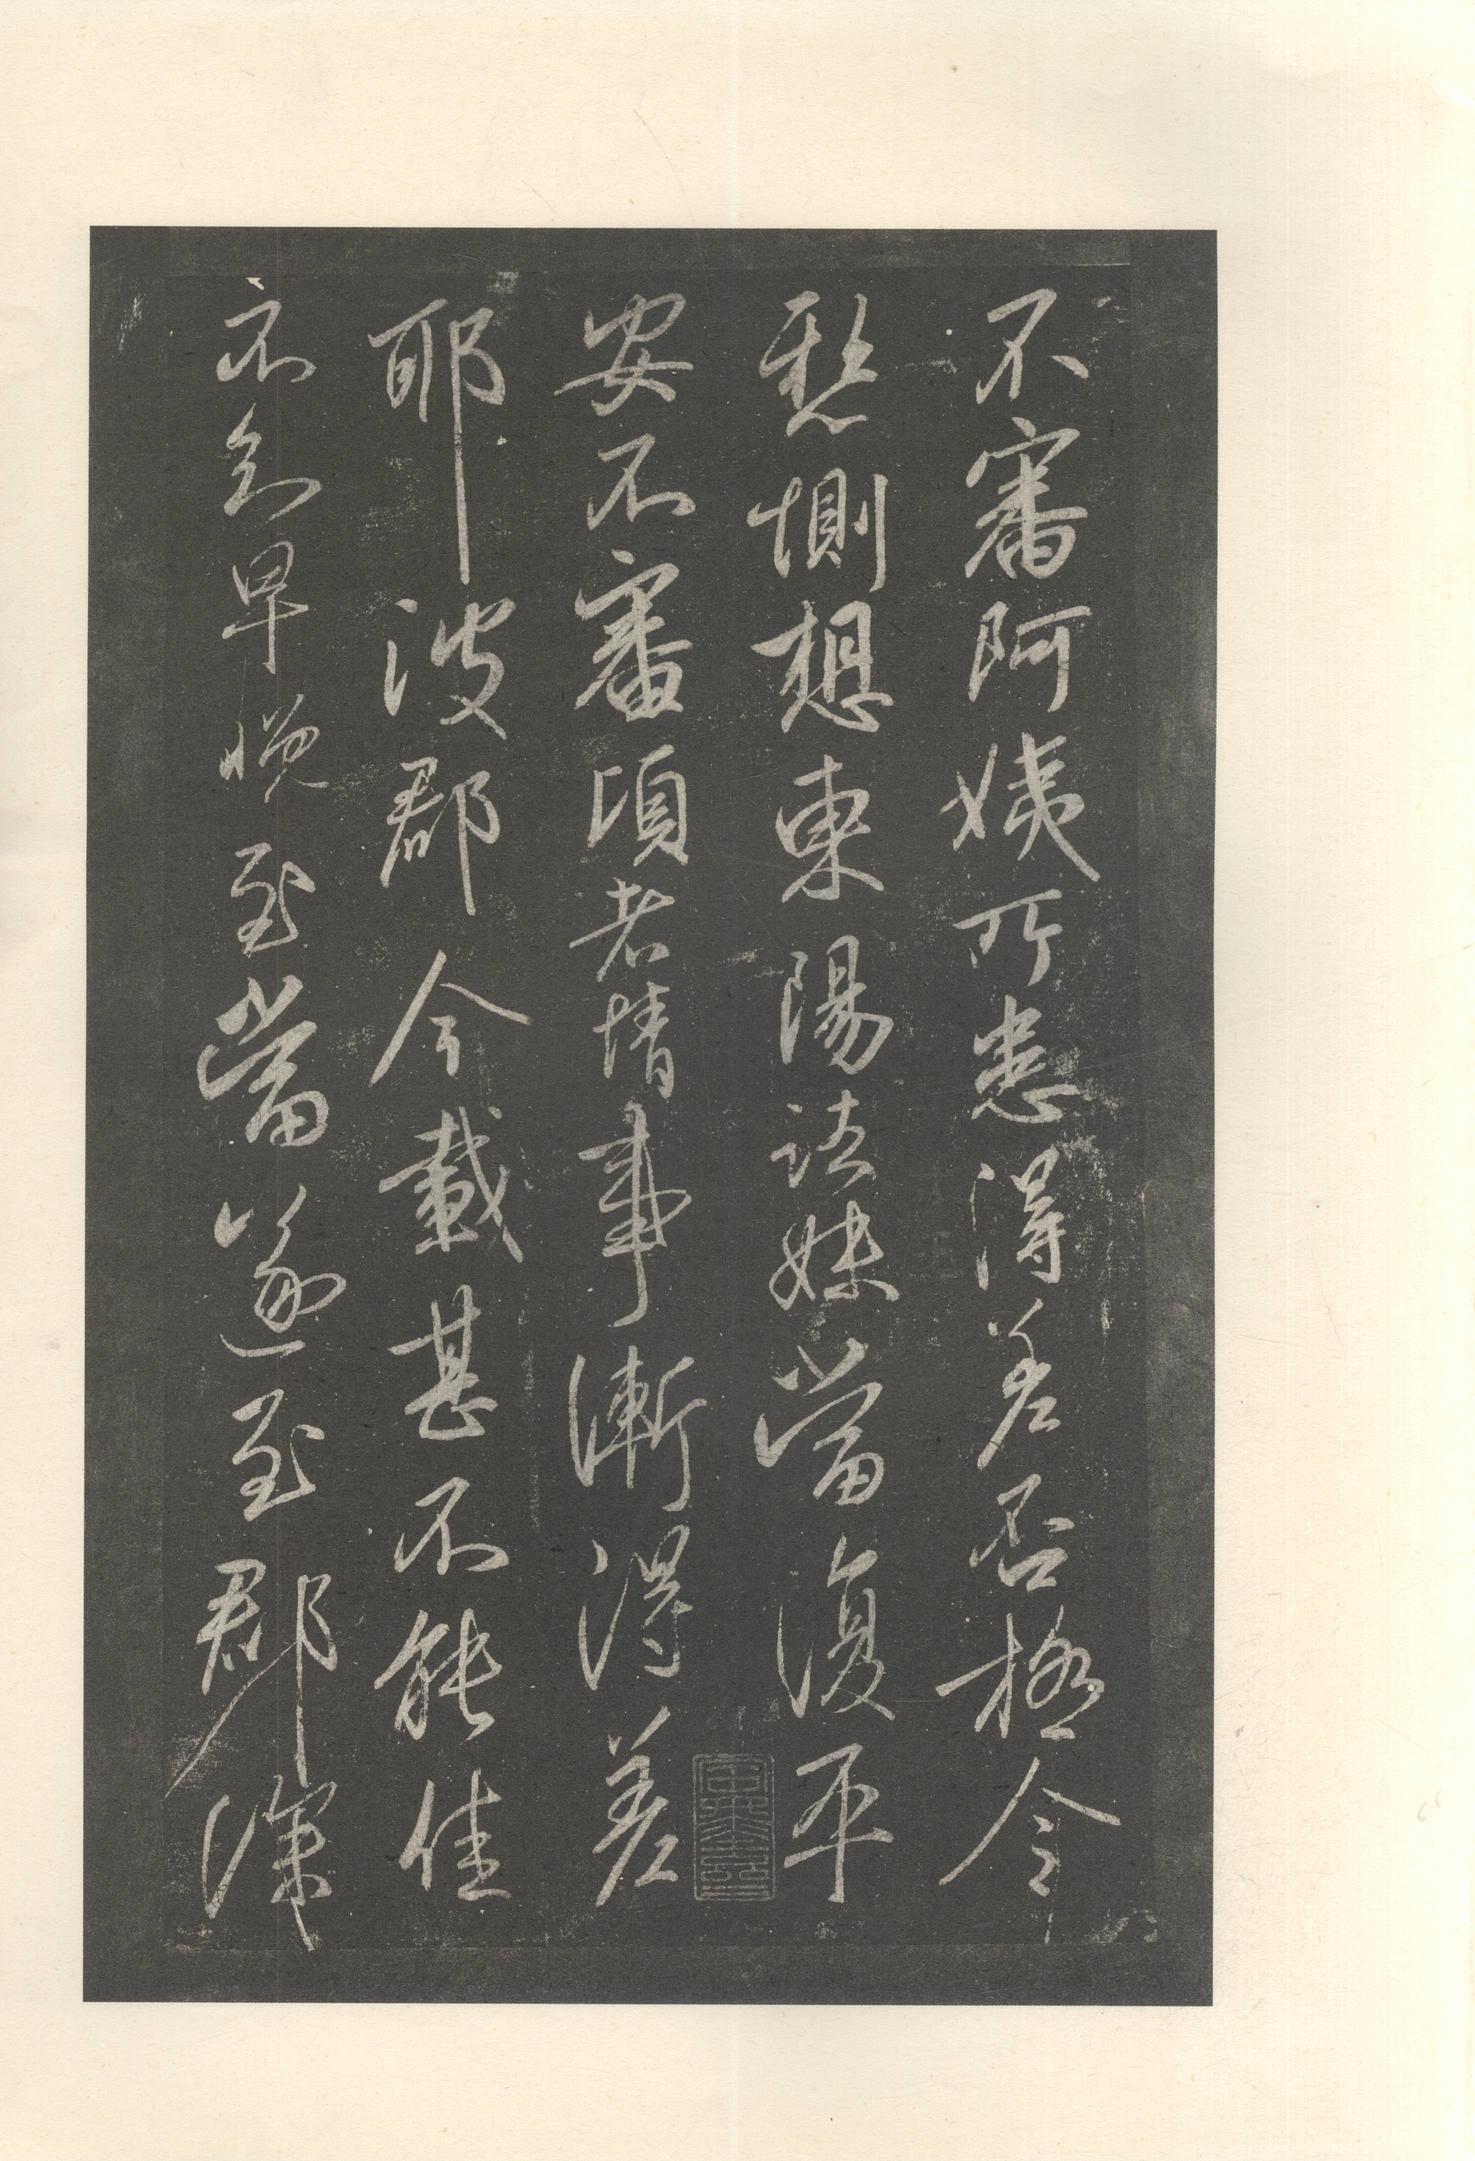 不審阿姨所患得差否極令
悬惻想東陽諸妹當復平
安不審頃者情事漸得差
耶彼郡今載甚不能佳
不知早晚至當遂至郡深